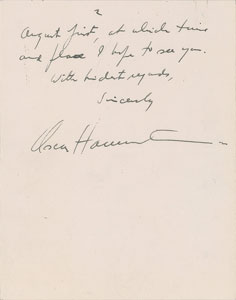 2
August first, at which time
and place I hope to see you.
With kindest regards,
Sincerely
Oscar